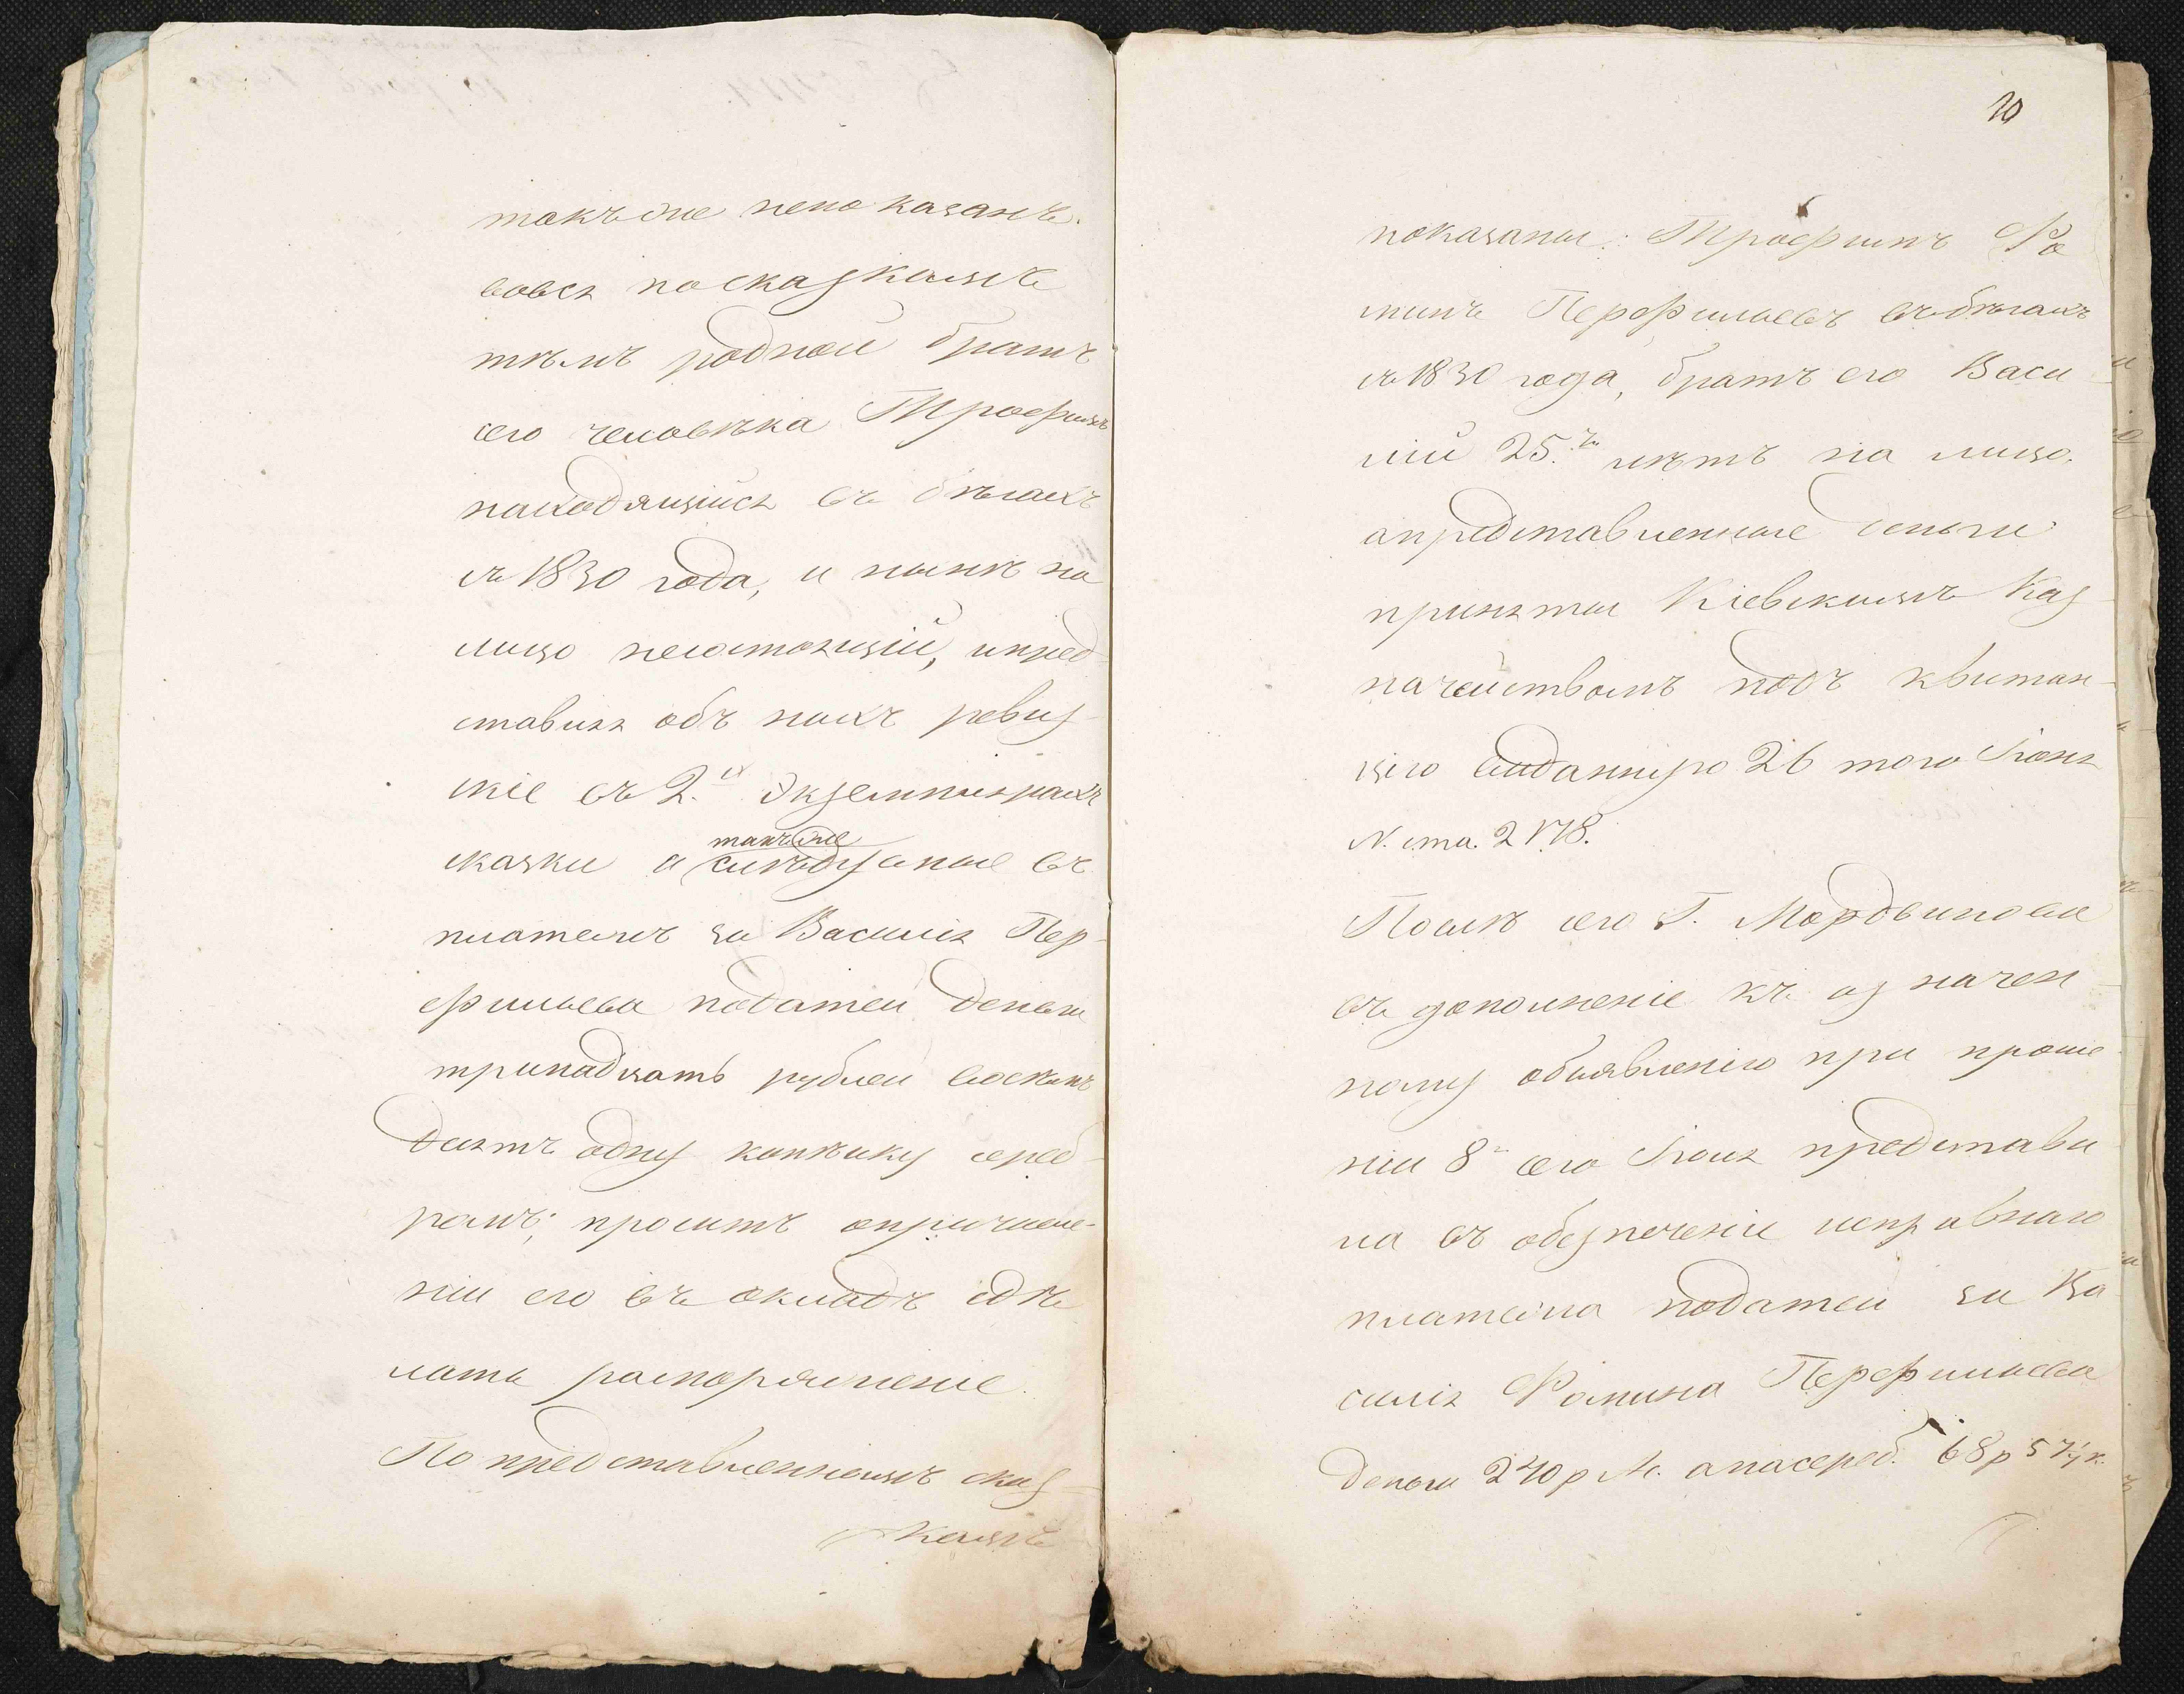 такъ же непоказанъ.
вовся посказкамъ
тѣмъ родной братъ
сего человѣка Трофимъ
находящійся въ бѣгахъ
съ 1830 года, и нынѣ на
лицо несостоящій, ипред-
ставляя объ нихъ ревиз-
скіе въ 2.хъ Экземплярахъ
сказки а такъ же слѣдуемые въ
платежъ за Василія Пер-
фильева податей деньги
тринадцать рублей восемь
десятъ одну копѣйку сереб-
ромъ; проситъ опричисле-
ніи его въ окладъ сдѣ
лать распоряженіе.
По представленнымъ сказ-
камъ
10
показаны: Трофимъ Фо
минъ Перфильевъ въбѣгахъ
съ 1830 года, братъ его Васи
лій 25.ти лѣтъ на лицо.
апредставленные деньги
приняты Кіевскимъ Каз-
начействомъ подъ квитан-
цію выданную 26 того Іюня
N. ста.
Послѣ сего Г. Мордвинова
въ дополненіе къ озна чен-
ному объявленію при проше
ніи 8 сего Іюля представи
ла въ обезпеченіе исправнаго
платежа податей за Ва
силія Фомина Перфильева
деньги 240 р М. анасереб. 68 р 57 к.